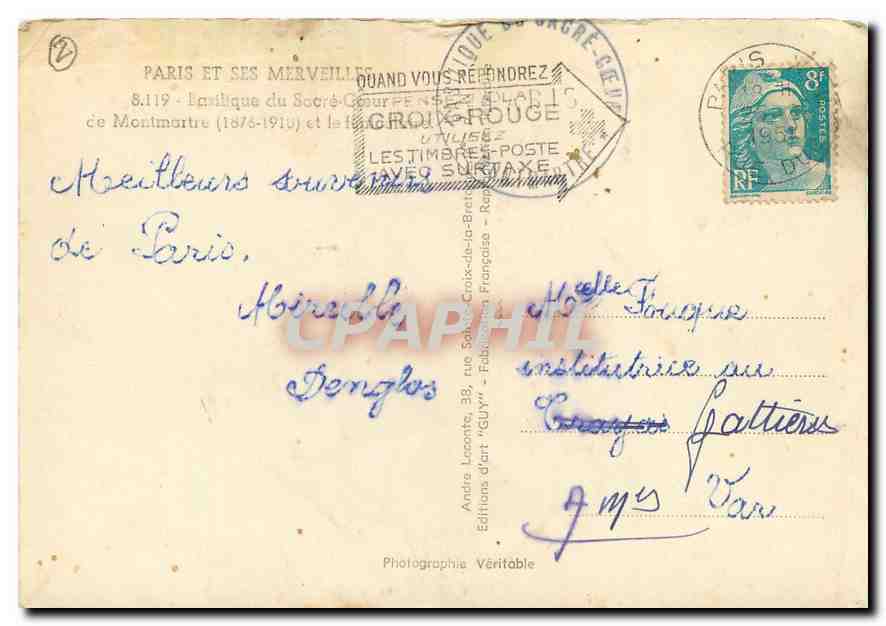 2
PARIS ET SES MERVEILLES
8.119 - Basilique du Sacré-Cœur
de Montmartre (1876-1910) et le
QUAND VOUS REPONDREZ
PENSEZ
CROIX-ROUGE
UTILISEZ
LES TIMBRES-POSTE
AVEC SURTAXE
BASILIQUE DU SACRÉ-CŒUR
PARIS
8F
POSTES
RF
Meilleurs souvenirs
de Paris.
Mireilly
Denglos
Melle Fouque
institutrice au
Gattières
A mes Var
André Leconte, 38, rue Sainte-Croix-de-la-Bretonnerie
Editions d'art "GUY" - Fabrication Française
Photographie Véritable
CPAPHIL